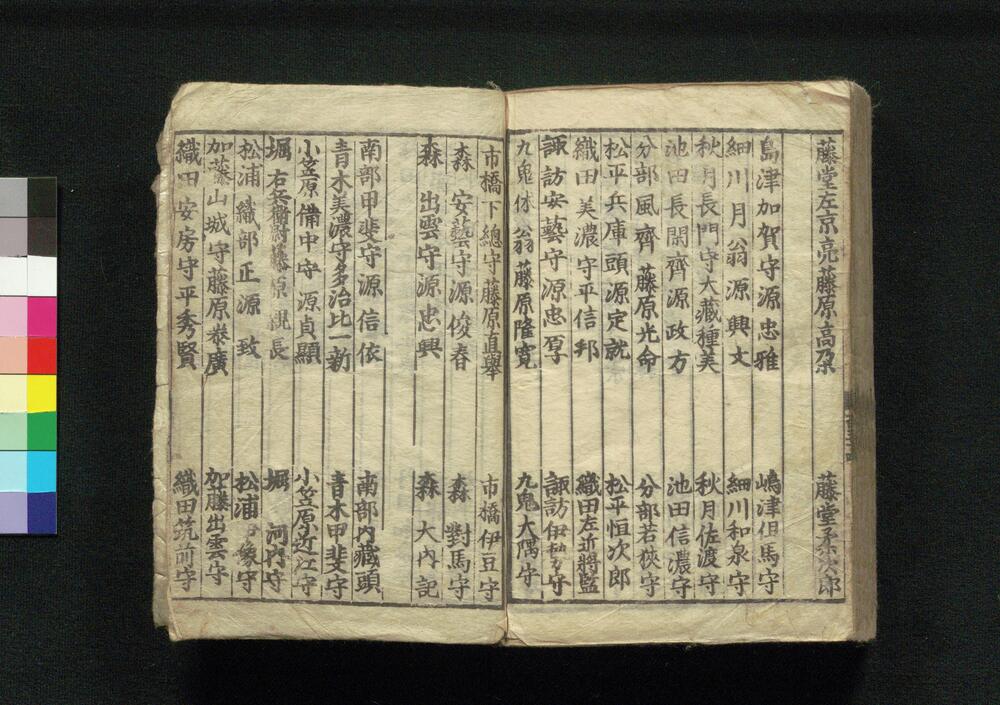 藤堂左京亮藤原高𣳾　藤堂柔次郎
島津加賀守源忠雅　嶋津但馬守
細川月翁源興文　細川和泉守
秋月長門守大藏種美　秋月佐渡守
池田長閑齊源政方　池田信濃守
分部風齊藤原光命　分部若狹守
松平兵庫頭源定就　松平恒次郎
織田美濃守平信邦　織田左近將監
諏訪安藝守源忠厚　諏訪伊勢守
九鬼休翁藤原隆寬　九鬼大隅守
市橋下總守藤原直擧　市橋伊豆守
森安藝守源俊春　森對馬守
森出雲守源忠興　森大內記
南部甲斐守源信依　南部內藏頭
青木美濃守多治比一新　青木甲斐守
小笠原備中守源貞顯　小笠原近江守
堀右兵衞尉藤原　長　堀河內守
松浦織部正源致　松浦　守
加藤山城守藤原泰廣　加藤出雲守
織田安房守平秀賢　織田筑前守